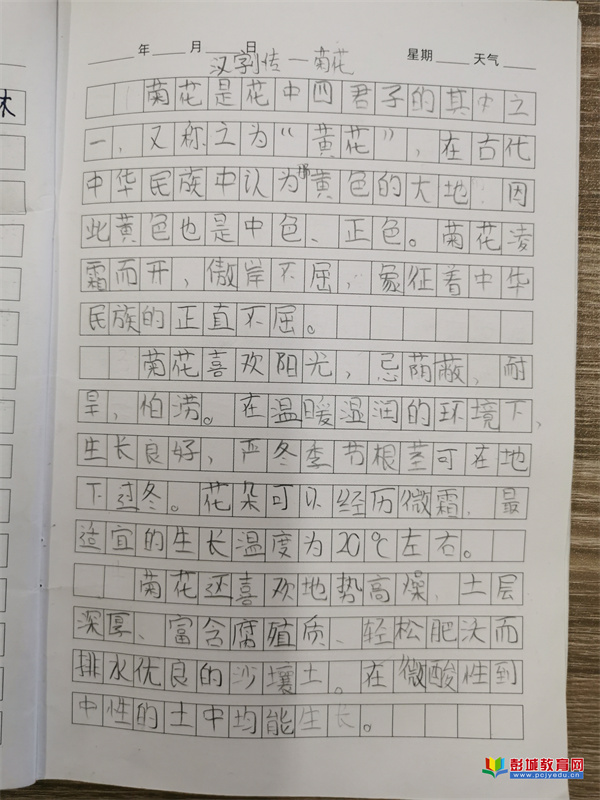 ____年____月____日 星期____天气____
汉字传一菊花
菊花是花中四君子的其中之
一，又称之为“黄花”，在古代
中华民族中认为黄色的大地，因
此黄色也是中色、正色。菊花凌
霜而开，傲岸不屈，象征着中华
民族的正直不屈。
菊花喜欢阳光，忌荫蔽，耐
旱，怕涝。在温暖湿润的环境下，
生长良好，严冬季节根茎可在地
下过冬。花朵可以经历微霜，最
适宜的生长温度为20℃左右。
菊花还喜欢地势高燥、土层
深厚、富含腐殖质、轻松肥沃而
排水优良的沙壤土。在微酸性到
中性的土中均能生长。
林
彭城教育网
www.pcjyedu.cn